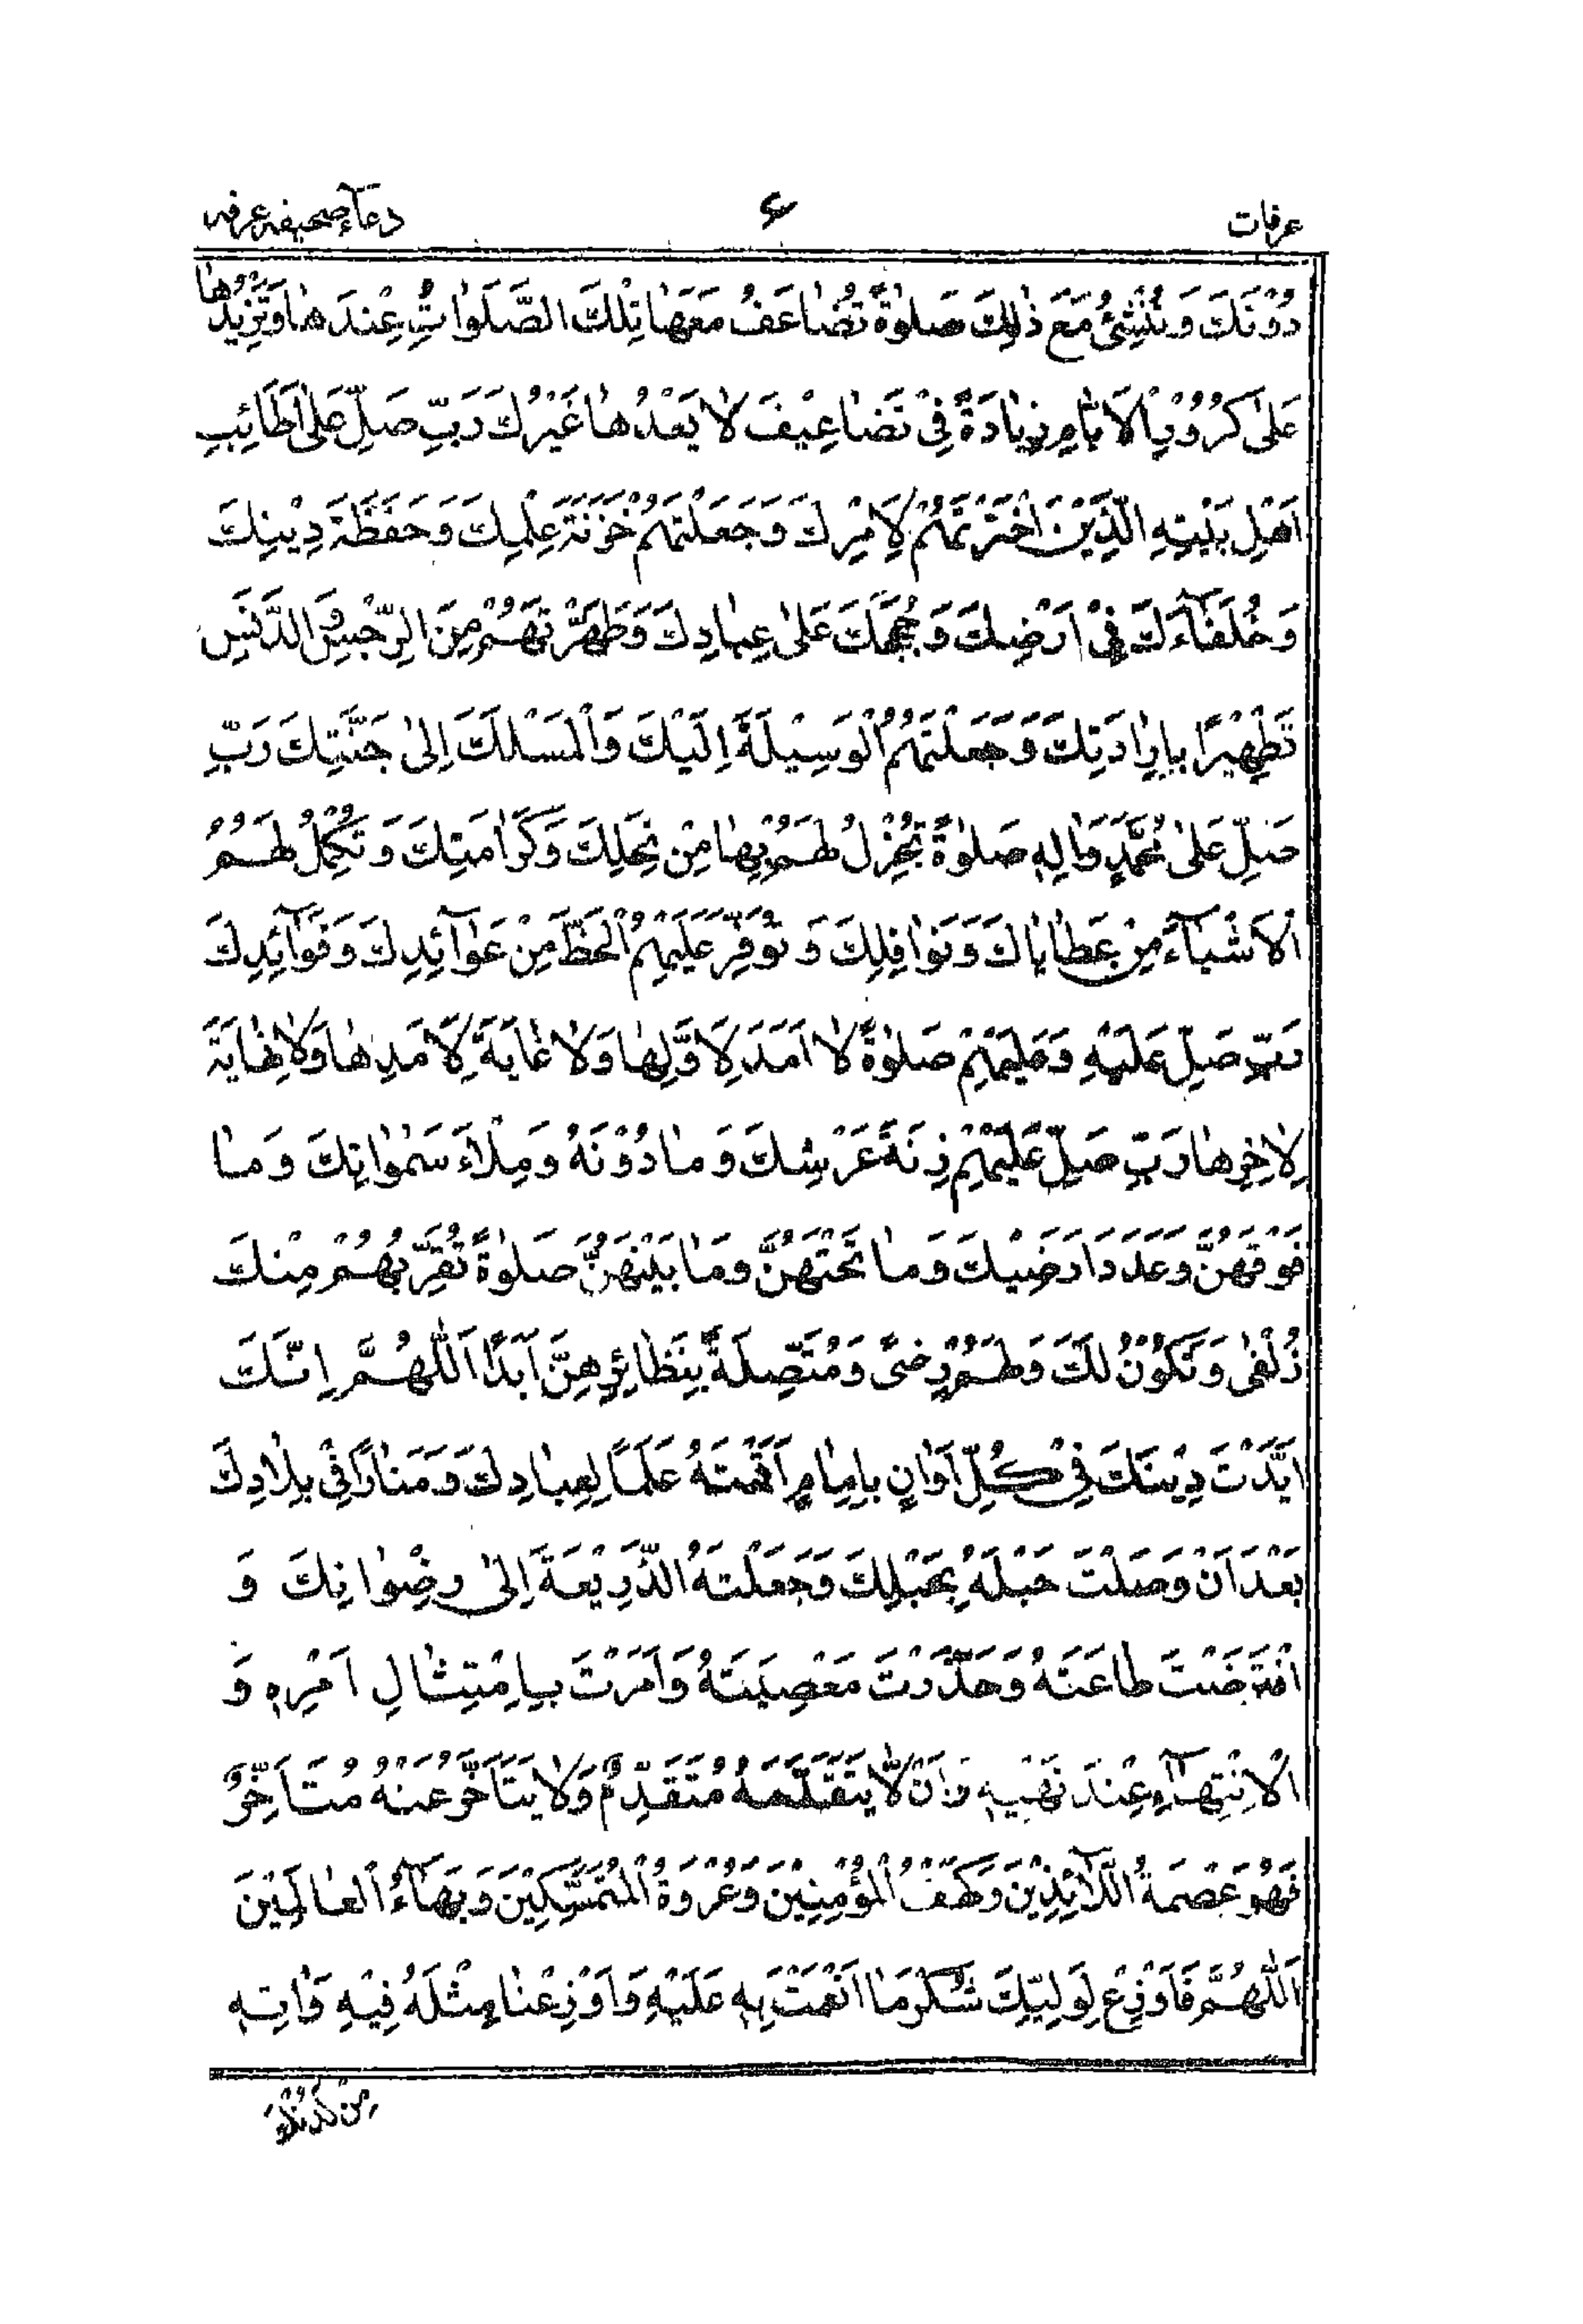 عرفات ۶ دعآء صحیفہ عرفہ
دُوْنَكَ وَ تُنْشِئُ مَعَ ذٰلِكَ صَلٰوةً تُضٰاعَفُ مَعَهٰا تِلْكَ الصَّلَوٰاتُ عِنْدَهٰا وَتَزِيْدُهٰا
عَلىٰ كُرُوْرِ الْاَيّٰامِ زِيٰادَةً فِىْ تَضٰاعِيْفَ لٰا يَعُدُّهٰا غَيْرُكَ رَبِّ صَلِّ عَلىٰ اَطَائِبِ
اَهْلِ بَيْتِهِ الَّذِيْنَ اخْتَرْتَهُمْ لِاَمْرِكَ وَ جَعَلْتَهُمْ خَزَنَةَ عِلْمِكَ وَ حَفَظَةَ دِيْنِكَ
وَ خُلَفٰآءَكَ فِىْ اَرْضِكَ وَ حُجَجَكَ عَلىٰ عِبٰادِكَ وَ طَهَّرْتَهُمْ مِنَ الرِّجْسِ وَ الدَّنَسِ
تَطْهِيْرًا بِاِرٰادَتِكَ وَ جَعَلْتَهُمُ الْوَسِيْلَةَ اِلَيْكَ وَ الْمَسْلَكَ اِلىٰ جَنَّتِكَ رَبِّ
صَلِّ عَلىٰ مُحَمَّدٍ وَاٰلِهٖ صَلٰوةً تُجْزِلُ لَهُمْ بِهٰا مِنْ نِحَلِكَ وَ كَرٰامَتِكَ وَ تُكْمِلُ لَهُمُ
الْاَشْيٰآءَ مِنْ عَطٰايٰاكَ وَ نَوٰافِلِكَ وَ تُوَفِّرُ عَلَيْهِمُ الْحَظَّ مِنْ عَوٰآئِدِكَ وَ فَوٰآئِدِكَ
رَبِّ صَلِّ عَلَيْهِ وَ عَلَيْهِمْ صَلٰوةً لٰا اَمَدَ لِاَوَّلِهٰا وَ لٰا غٰايَةَ لِاَمَدِهٰا وَ لٰا نِهٰايَةَ
لِاٰخِرِهٰا رَبِّ صَلِّ عَلَيْهِمْ زِنَةَ عَرْشِكَ وَ مٰا دُوْنَهُ وَ مِلْاَءَ سَمٰوٰاتِكَ وَ مٰا
فَوْقَهُنَّ وَ عَدَدَ اَرَضِيْكَ وَ مٰا تَحْتَهُنَّ وَ مٰا بَيْنَهُنَّ صَلٰوةً تُقَرِّبُهُمْ مِنْكَ
زُلْفىٰ وَ تَكُوْنُ لَكَ وَ لَهُمْ رِضىً وَ مُتَّصِلَةً بِنَظٰائِرِهِنَّ اَبَدًا اَللّٰهُمَّ اِنَّكَ
اَيَّدْتَ دِيْنَكَ فِىْ كُلِّ اَوٰانٍ بِاِمٰامٍ اَقَمْتَهُ عَلَمًا لِعِبٰادِكَ وَ مَنٰارًا فِىْ بِلٰادِكَ
بَعْدَ اَنْ وَصَلْتَ حَبْلَهُ بِحَبْلِكَ وَ جَعَلْتَهُ الذَّرِيْعَةَ اِلىٰ رِضْوٰانِكَ وَ
افْتَرَضْتَ طٰاعَتَهُ وَ حَذَّرْتَ مَعْصِيَتَهُ وَ اَمَرْتَ بِامْتِثٰالِ اَمْرِهٖ وَ
الْاِنْتِهٰآءِ عِنْدَ نَهْيِهٖ وَ اَنْ لّٰا يَتَقَدَّمَهُ مُتَقَدِّمٌ وَ لٰا يَتَاَخَّرَ عَنْهُ مُتَاَخِّرٌ
فَهُوَ عِصْمَةُ اللّٰآئِذِيْنَ وَ كَهْفُ الْمُؤْمِنِيْنَ وَ عُرْوَةُ الْمُتَمَسِّكِيْنَ وَ بَهٰآءُ الْعٰالَمِيْنَ
اَللّٰهُمَّ فَاَوْزِعْ لِوَلِيِّكَ شُكْرَ مٰا اَنْعَمْتَ بِهٖ عَلَيْهِ وَ اَوْزِعْنٰا مِثْلَهُ فِيْهِ وَ اٰتِهٖ
مِنْ لَدُنْكَ